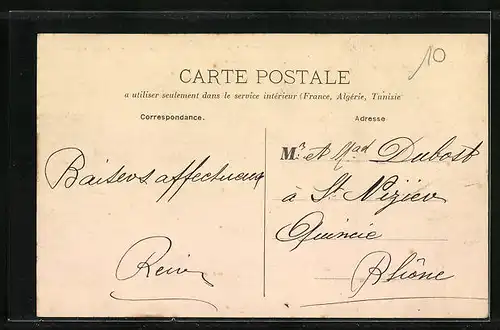 10
CARTE POSTALE
a utiliser seulement dans le service intérieur (France, Algérie, Tunisie
Correspondance.
Adresse
Baisers affectueux
Mr. et Mad Dubost
à St Nizier
Quincié
Rhône